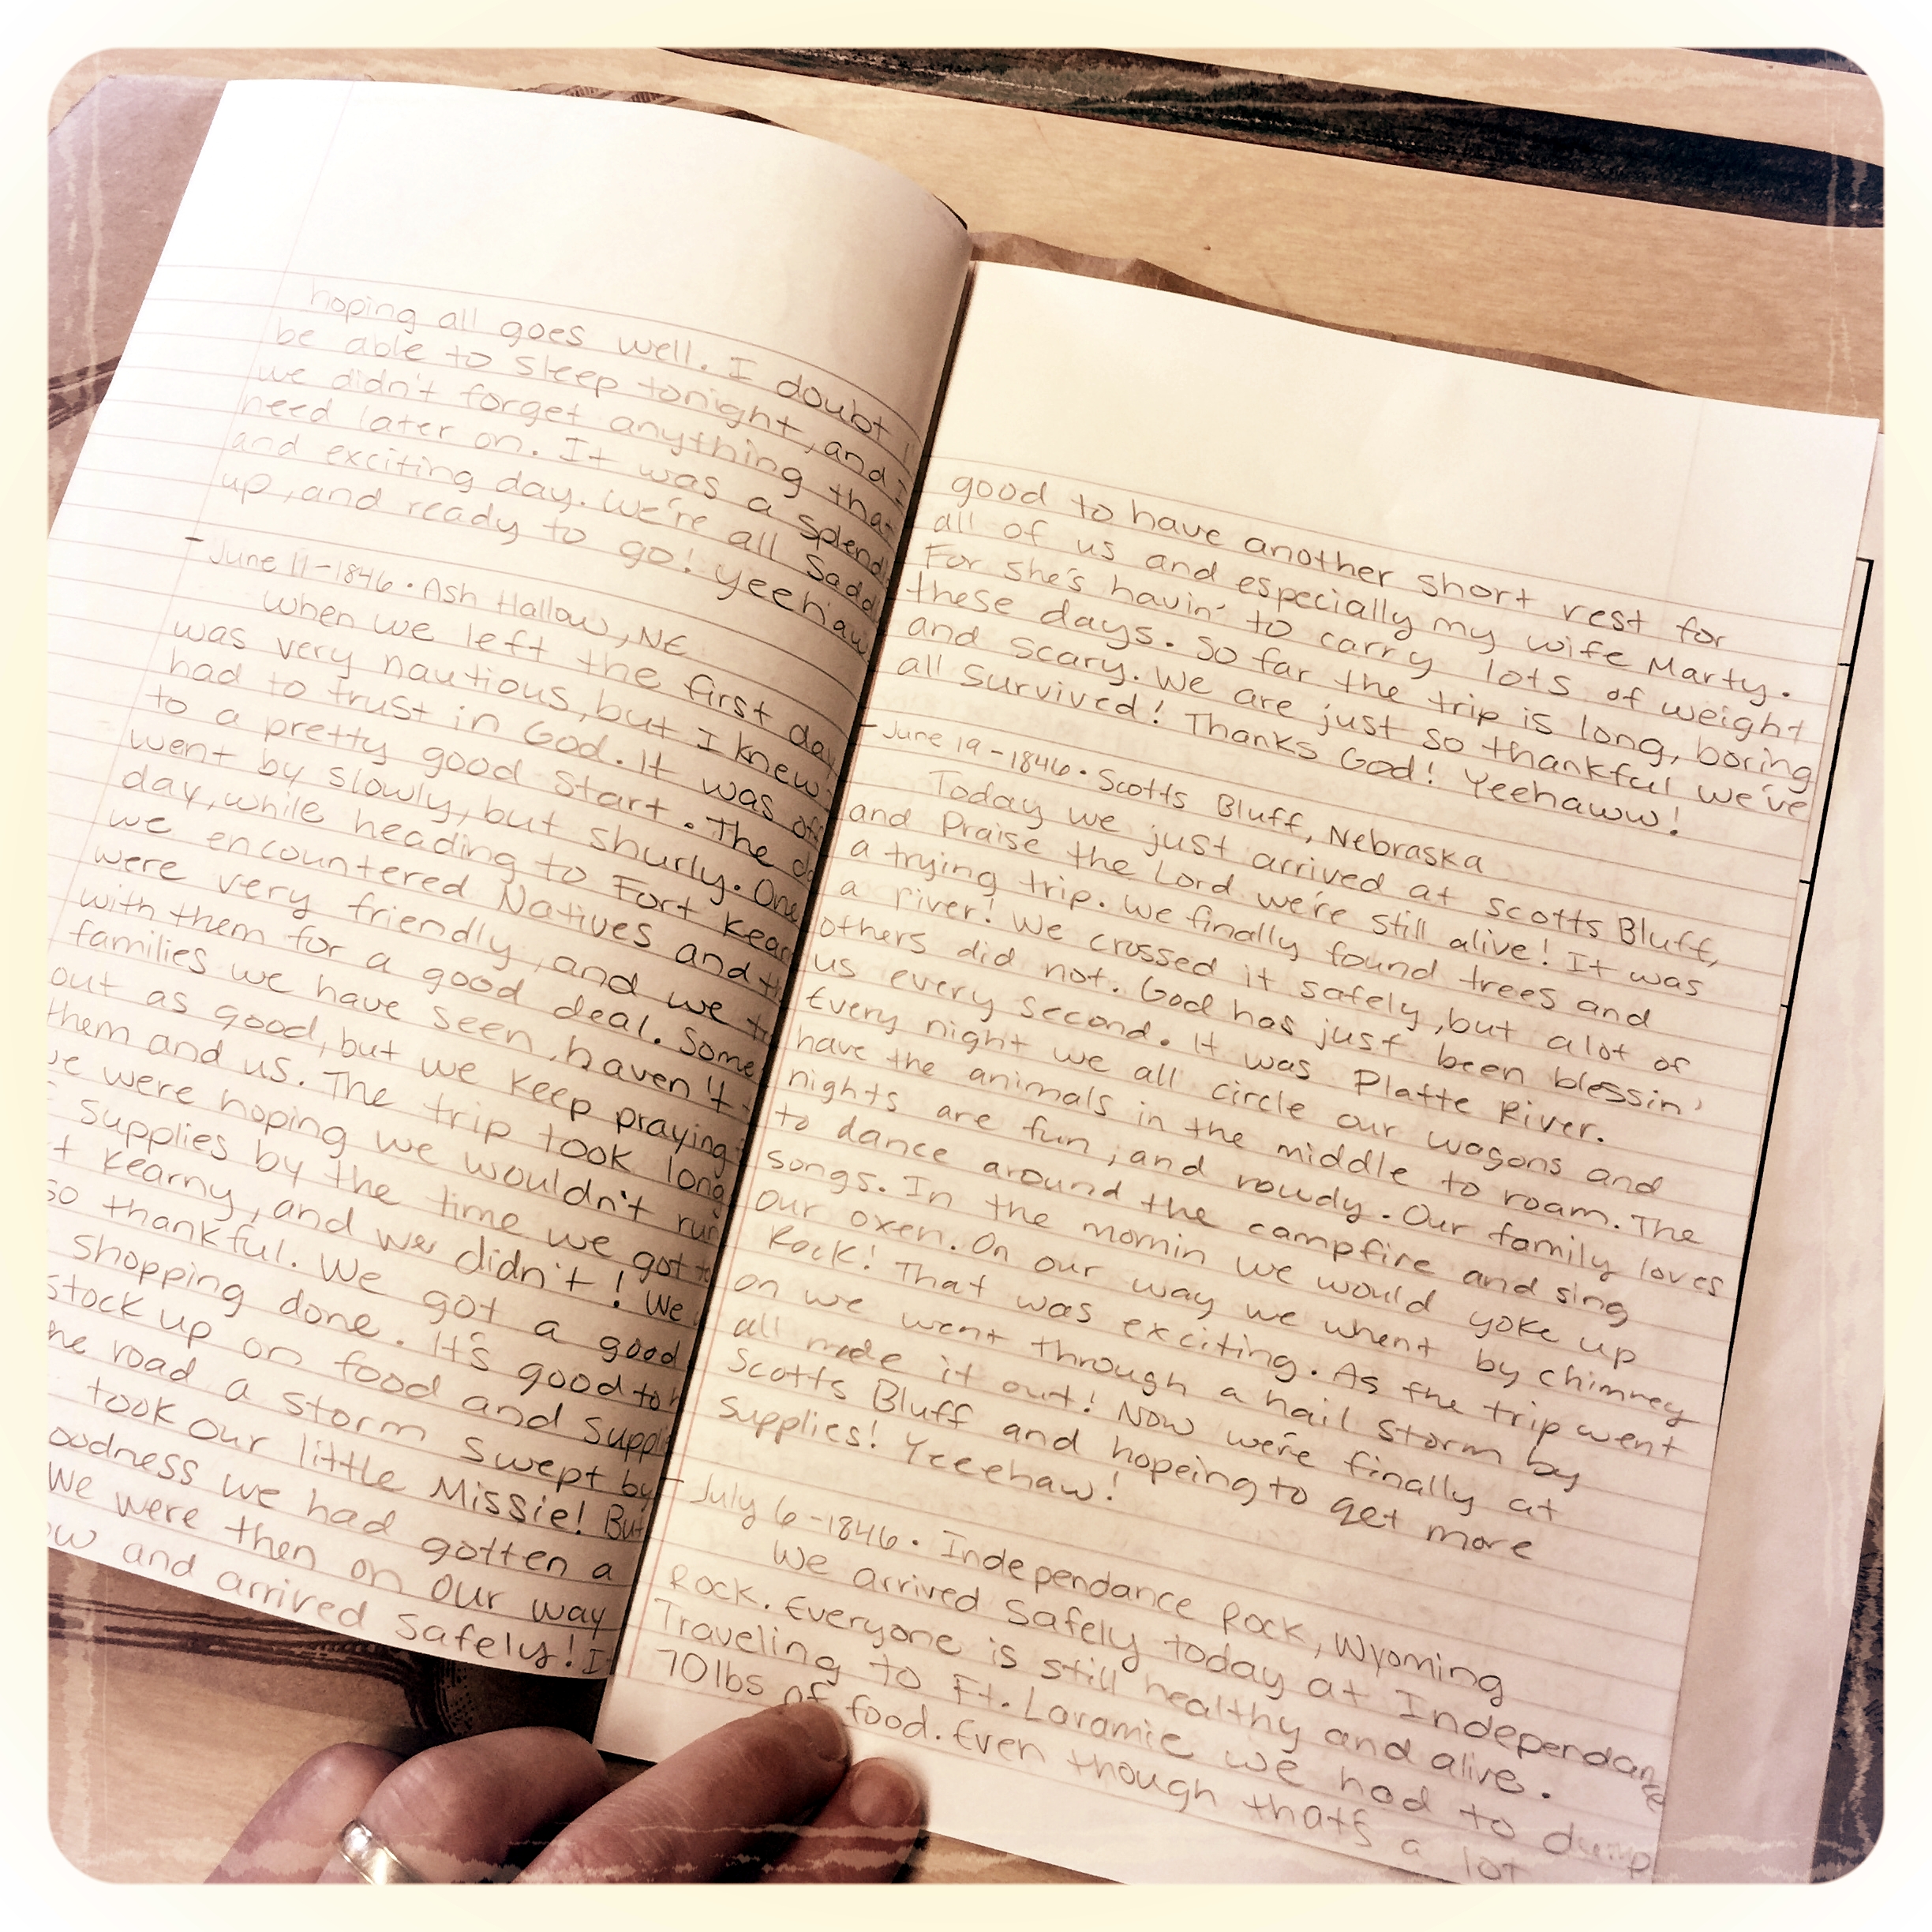 hoping all goes well. I doubt
be able to sleep tonight, and
we didn't forget anything that
need later on. It was a splend
and exciting day. We're all Sadd
up, and ready to go! Yeehaw
- June 11-1846 • Ash Hallow, NE
When we left the first day
was very nautious, but I knew
had to trust in God. It was off
to a pretty good start. The da
went by slowly, but shurly. One
day, while heading to Fort Kear
we encountered Natives and th
were very friendly, and we tr
with them for a good deal. Some
families we have seen, haven't
out as good, but we keep praying
them and us. The trip took long
we were hoping we wouldn't run
supplies by the time we got to
t Kearny, and we didn't! We
so thankful. We got a good
shopping done. It's good to h
stock up on food and suppli
he road a storm swept by
took our little Missie! But
oodness we had gotten a
We were then on our way
ow and arrived safely! It
good to have another short rest for
all of us and especially my wife Marty.
For she's havin' to carry lots of weight
these days. So far the trip is long, boring
and scary. We are just so thankful we've
all survived! Thanks God! Yeehaww!
- June 19-1846 • Scotts Bluff, Nebraska
Today we just arrived at Scotts Bluff,
and Praise the Lord we're still alive! It was
a trying trip. We finally found trees and
a river! We crossed it safely, but alot of
others did not. God has just been blessin'
us every second. It was Platte River.
Every night we all circle our wagons and
have the animals in the middle to roam. The
nights are fun, and rowdy. Our family loves
to dance around the campfire and sing
songs. In the mornin we would yoke up
our oxen. On our way we whent by chimney
Rock! That was exciting. As the trip went
on we went through a hail storm by
all made it out! Now we're finally at
Scotts Bluff and hopeing to get more
supplies! Yeeehaw!
- July 6-1846 • Independance Rock, Wyoming
We arrived safely today at Independance
Rock. Everyone is still healthy and alive.
Traveling to Ft. Laramie we had to dump
70lbs of food. Even though thats a lot